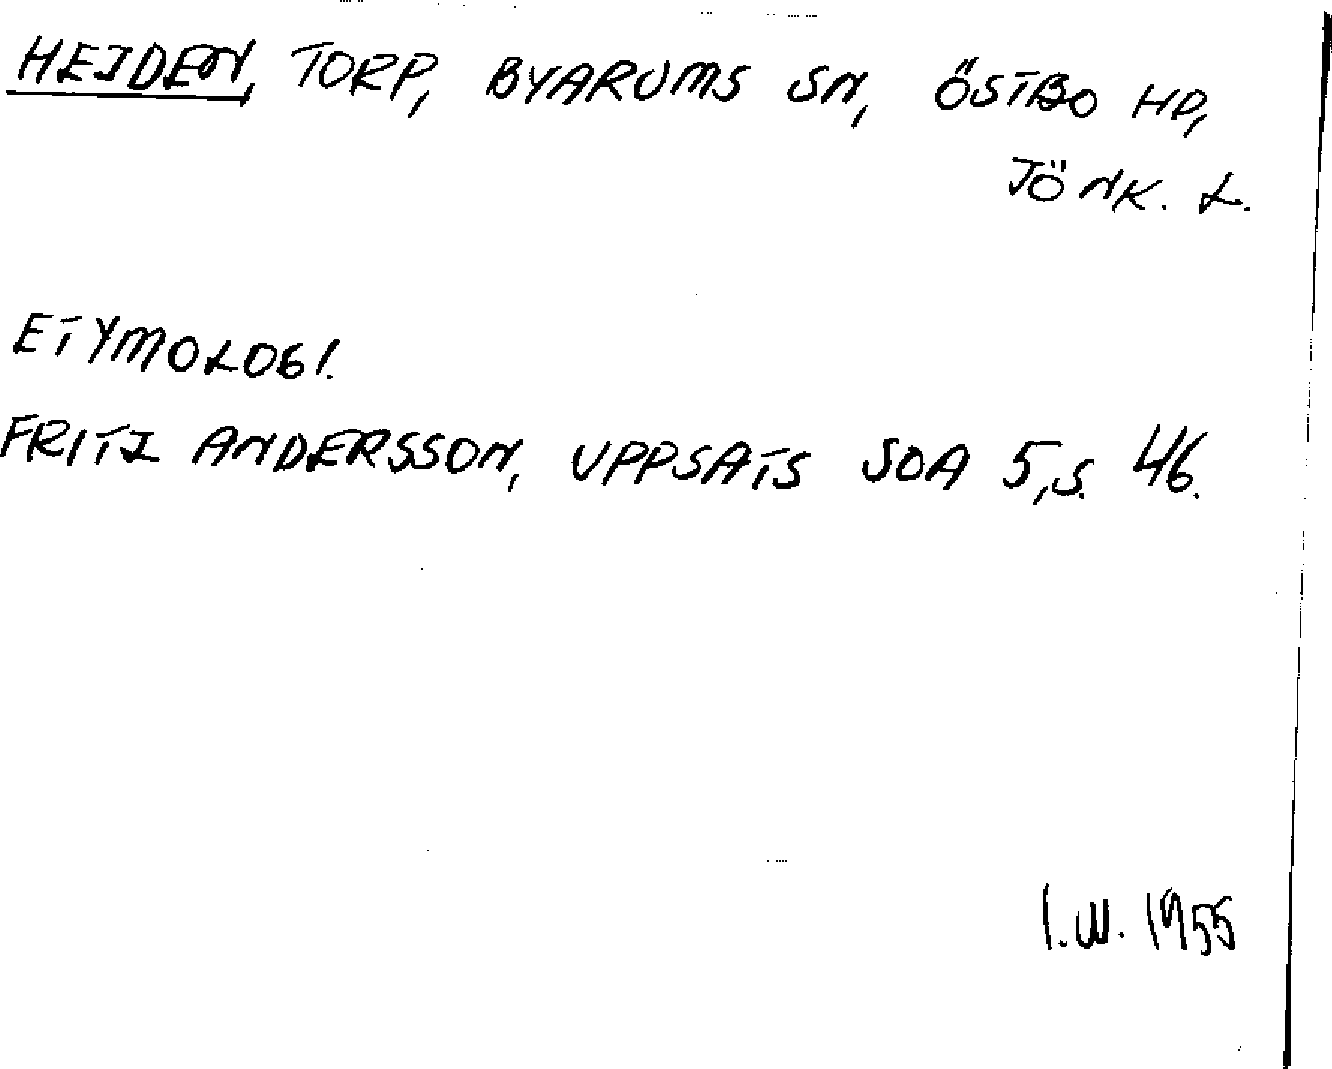 HEJDEN, TORP, BYARUMS SN, ÖSTBO HD,
JÖNK. L.
ETYMOLOGI.
FRITZ ANDERSSON, UPPSATS SOA 5, S. 46.
I.W. 1955